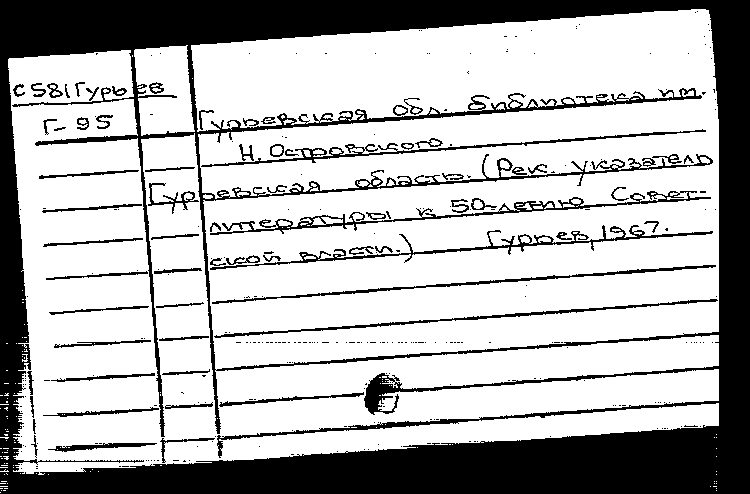 С581Гурьев
Г-95
Гурьевская обл. библиотека им.
Н. Островского.
Гурьевская область. (Рек. указатель
литературы к 50-летию Совет-
ской власти.) Гурьев, 1967.